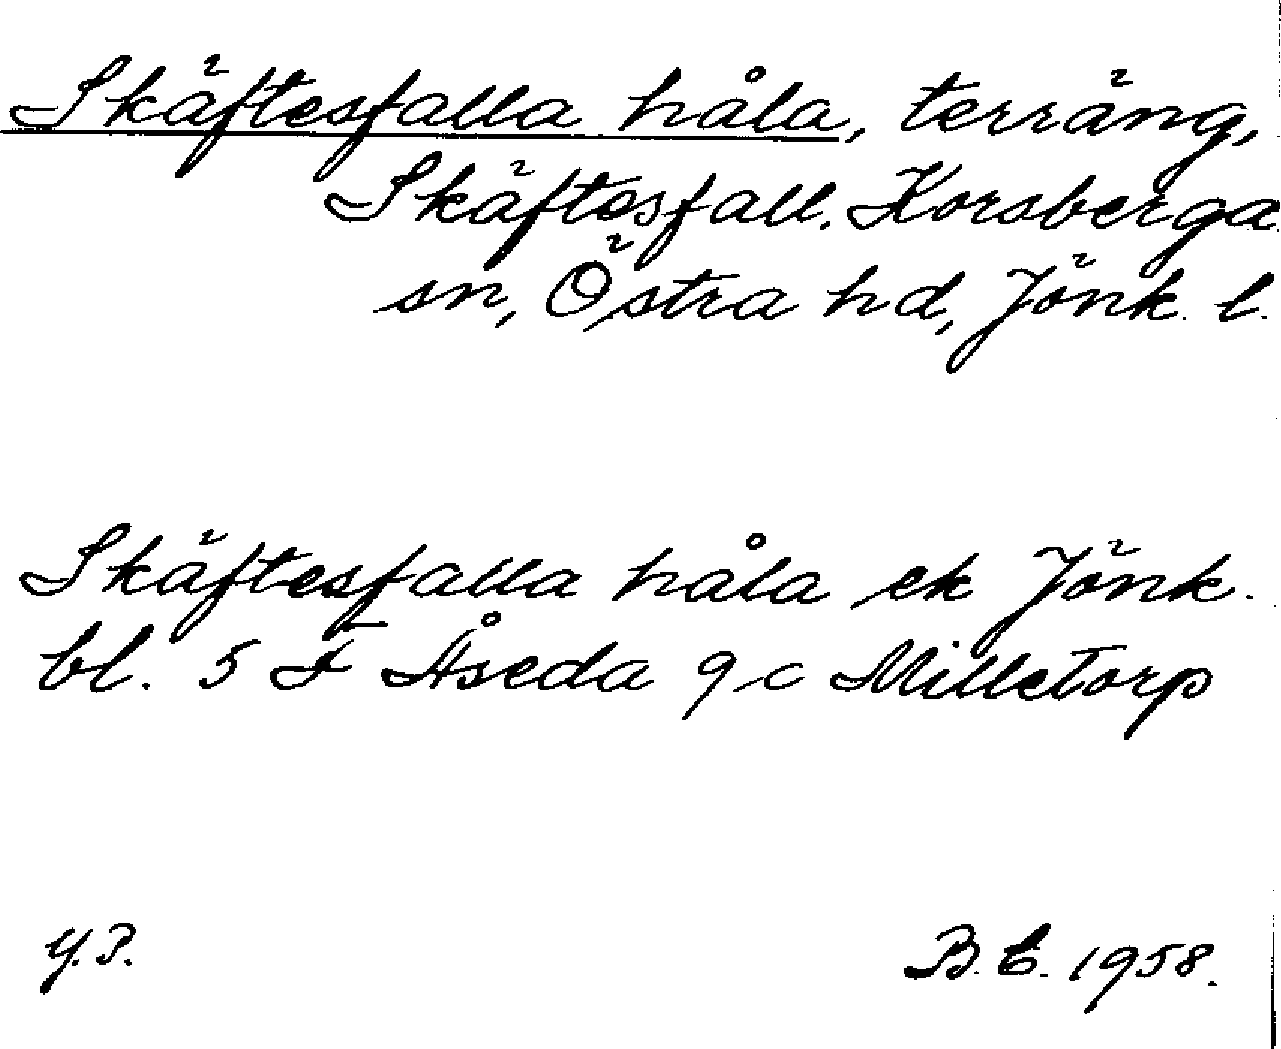 Skäftesfalla håla, terräng,
Skäftesfall, Korsberga
sn, Östra hd, Jönk. l.
Skäftesfalla håla ek Jönk.
bl. 5 F Åseda 9 c Milletorp
Y.P.
B.E. 1958.